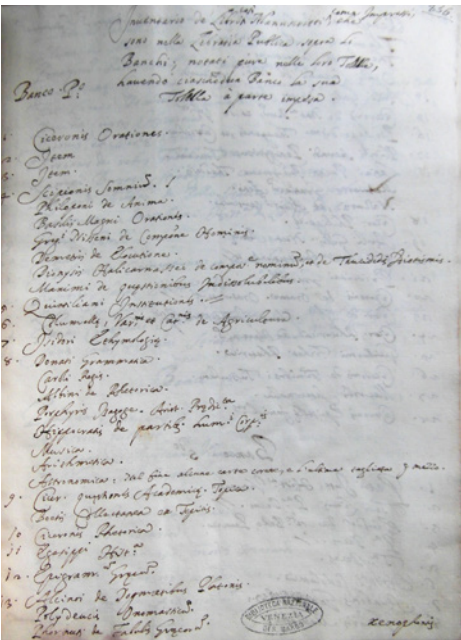 Inventario de Libri Manuscritti, che
sono nella Libraria Publica sopra li
Banchi, notati pure nelle loro Tolelle,
havendo ciaschedun Banco la sua
Tolella à parte impressa.
Banco P.o
1. Ciceronis Orationes.
2. Item
3. Item.
4. Scipionis Somniũ.
Philoponi de Anima.
Basilij Magni Orationes.
Greg. Nisseni de Hominis.
Demetrius de Elocutione.
Dionysii Halicarnassei de nominum, et de Thucididis
Maximi de quęstionibus Indissolubilibus.
5. Quintiliani Institutiones.
6. Columella, Var. et Cat. de Agricoltura.
7. Isidori Ethymologię.
8. Donati Grammatica.
Carli Regis.
Albini de Rhetorica.
Porphyrii Isagoge. Arist. Prędic.ta
Hippocratis de partib. hum. Corp.
Musica.
Arithmetica.
Astronomica, dal fine alcune carte et l'ultima tagliata
9. Cicer. quęstiones Academicę. Topica.
Boetii in Topicis.
10 Ciceronis Rhetorica.
11 Egesippi Hist.a
12. Epigramm. Gręcor.
13. Alcinoi de Dogmatibus Platonis.
Polydeucis Onomasticũ.
Phornutus de Fabulis Gręcor.
BIBLIOTECA NAZIONALE
VENEZIA
xenophontis